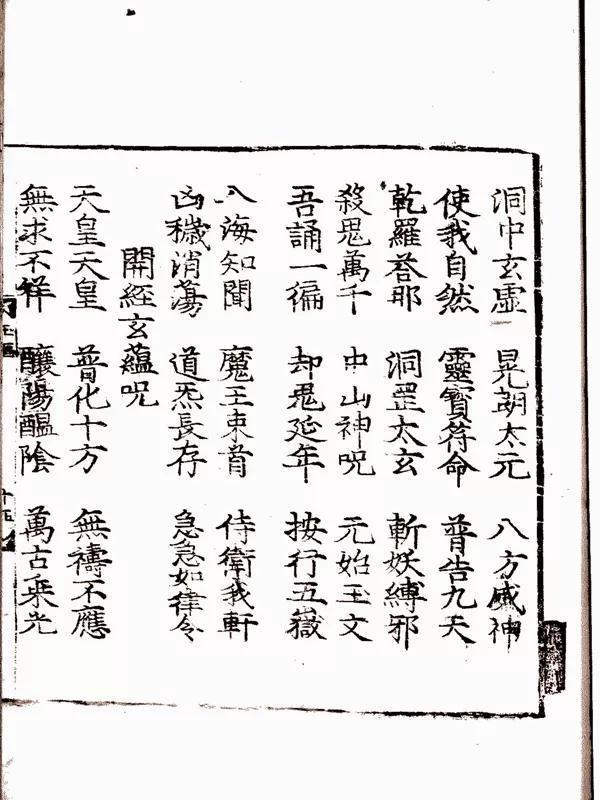 洞中玄虛 晃朗太元 八方威神
使我自然 靈寶符命 普告九天
乾羅荅那 洞罡太玄 斬妖縛邪
殺鬼萬千 中山神呪 元始玉文
吾誦一徧 却鬼延年 按行五嶽
八海知聞 魔王束首 侍衛我軒
凶穢消蕩 道炁長存 急急如律令
開經玄蘊呪
天皇天皇 普化十方 無禱不應
無求不祥 釀陽醖陰 萬古乘光